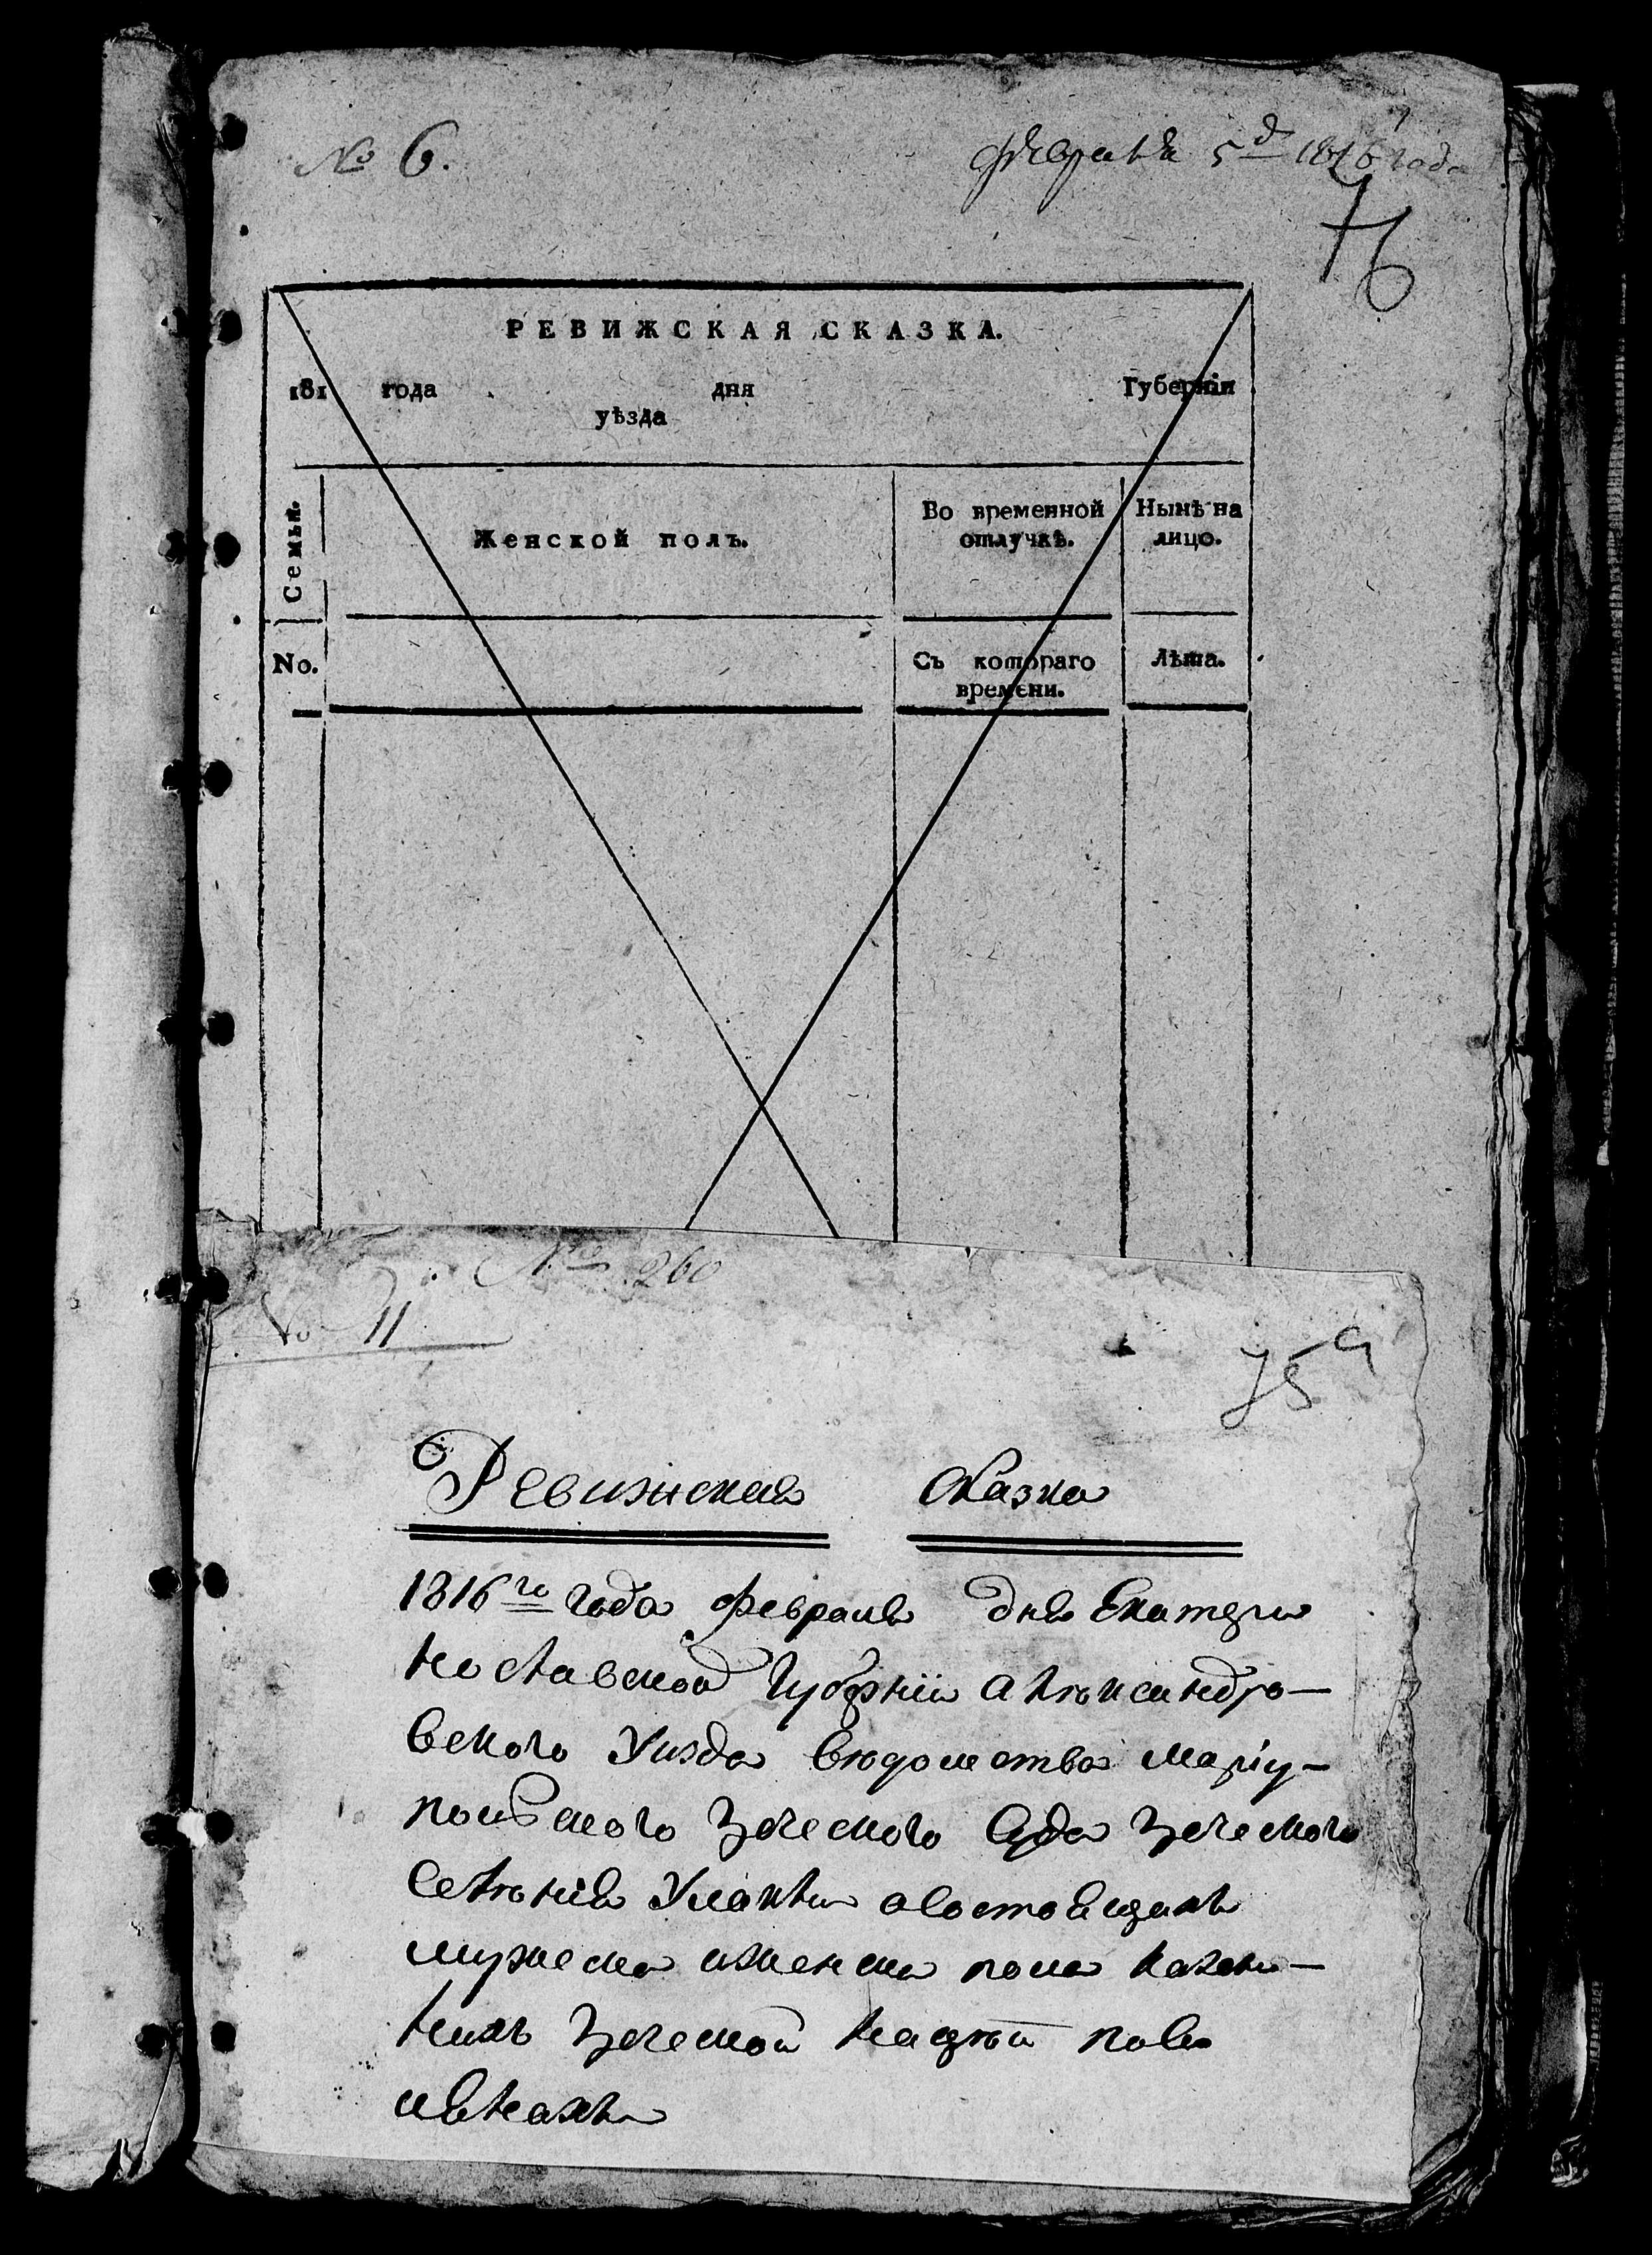 № 6.
февраля 5д 1816 года
76
РЕВИЖСКАЯ СКАЗКА.
181 года дня Губерніи
уѣзда
Семьи.
Женской полъ.
Во временной
отлучкѣ.
Нынѣ на
лицо.
No.
Съ котораго
времени.
Лѣта.
260
№ 11
75а
Ревижская Сказка
1816го года февраля дня Екатери
нославской Губерніи Александро-
вского Уизда вѣдомства Маріу-
польского Греческого Суда Греческого
селенія Улаклы о состоящихъ
мужеска и женска пола
нихъ Греческой нацѣи посе